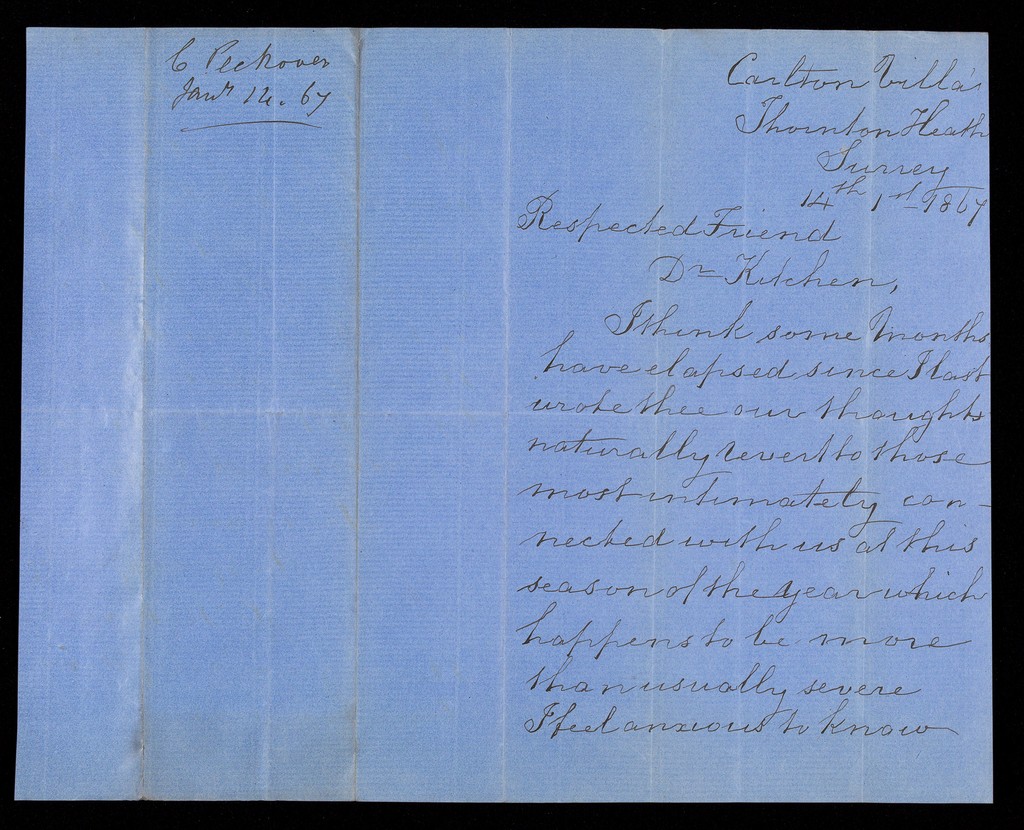 C Peckover
Jany 14. 67
Carlton Villa's
Thornton Heath
Surrey
14th 1st 1867
Respected Friend
Dr Kitchen,
I think some Months
have elapsed since I last
wrote thee our thoughts
naturally revert to those
most intimately con-
nected with us at this
season of the year which
happens to be more
than usually severe
I feel anxious to know